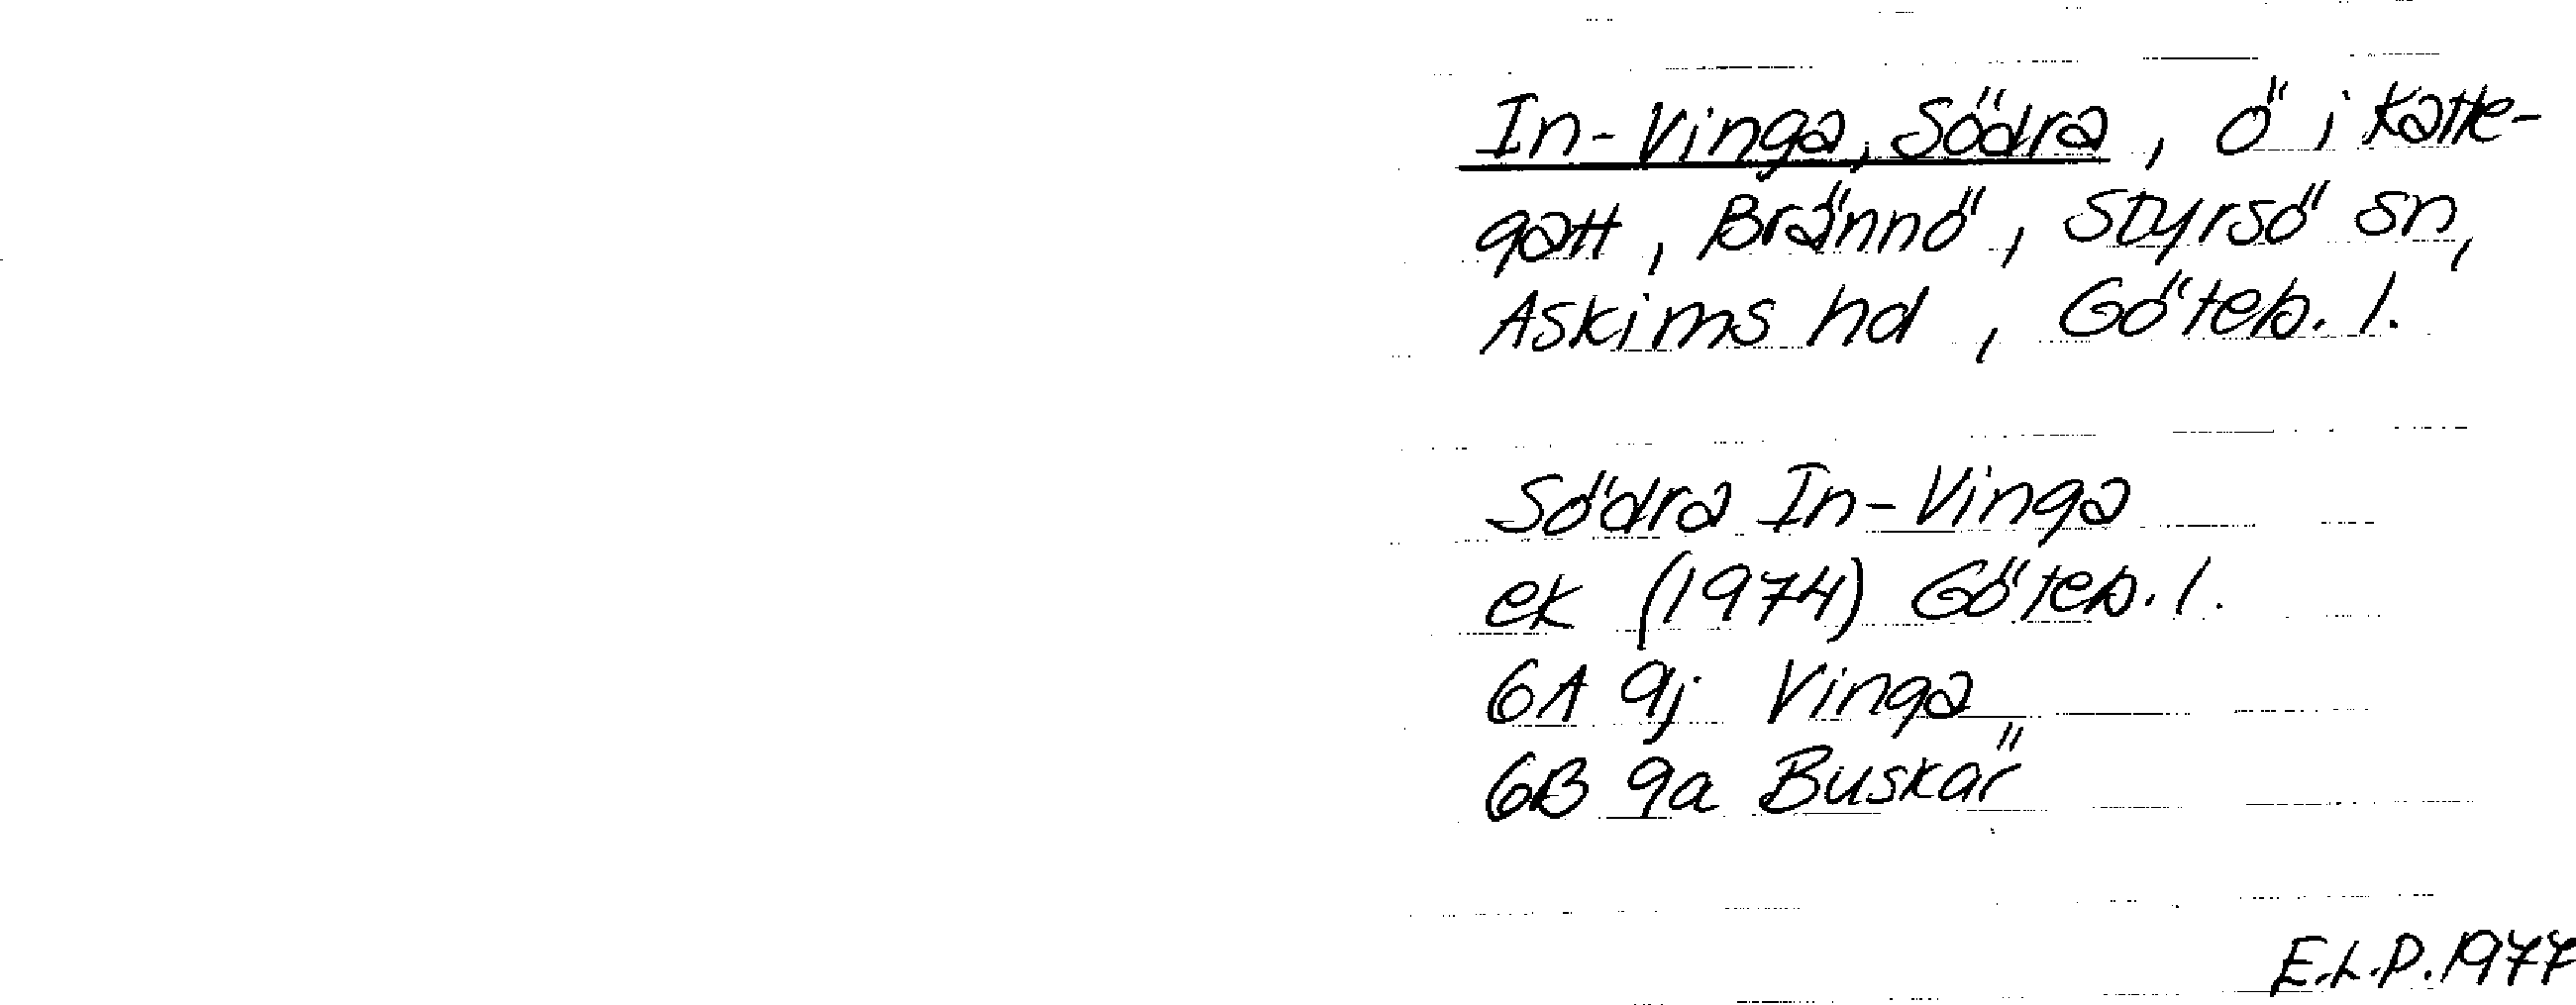 In-Vinga, Södra, ö i Katte-
gatt, Brännö, Styrsö sn,
Askims hd, Göteb. l.
Södra In-Vinga
ek (1974) Göteb. l.
6A 9j Vinga
6B 9a Buskär
E.L.P. 1977